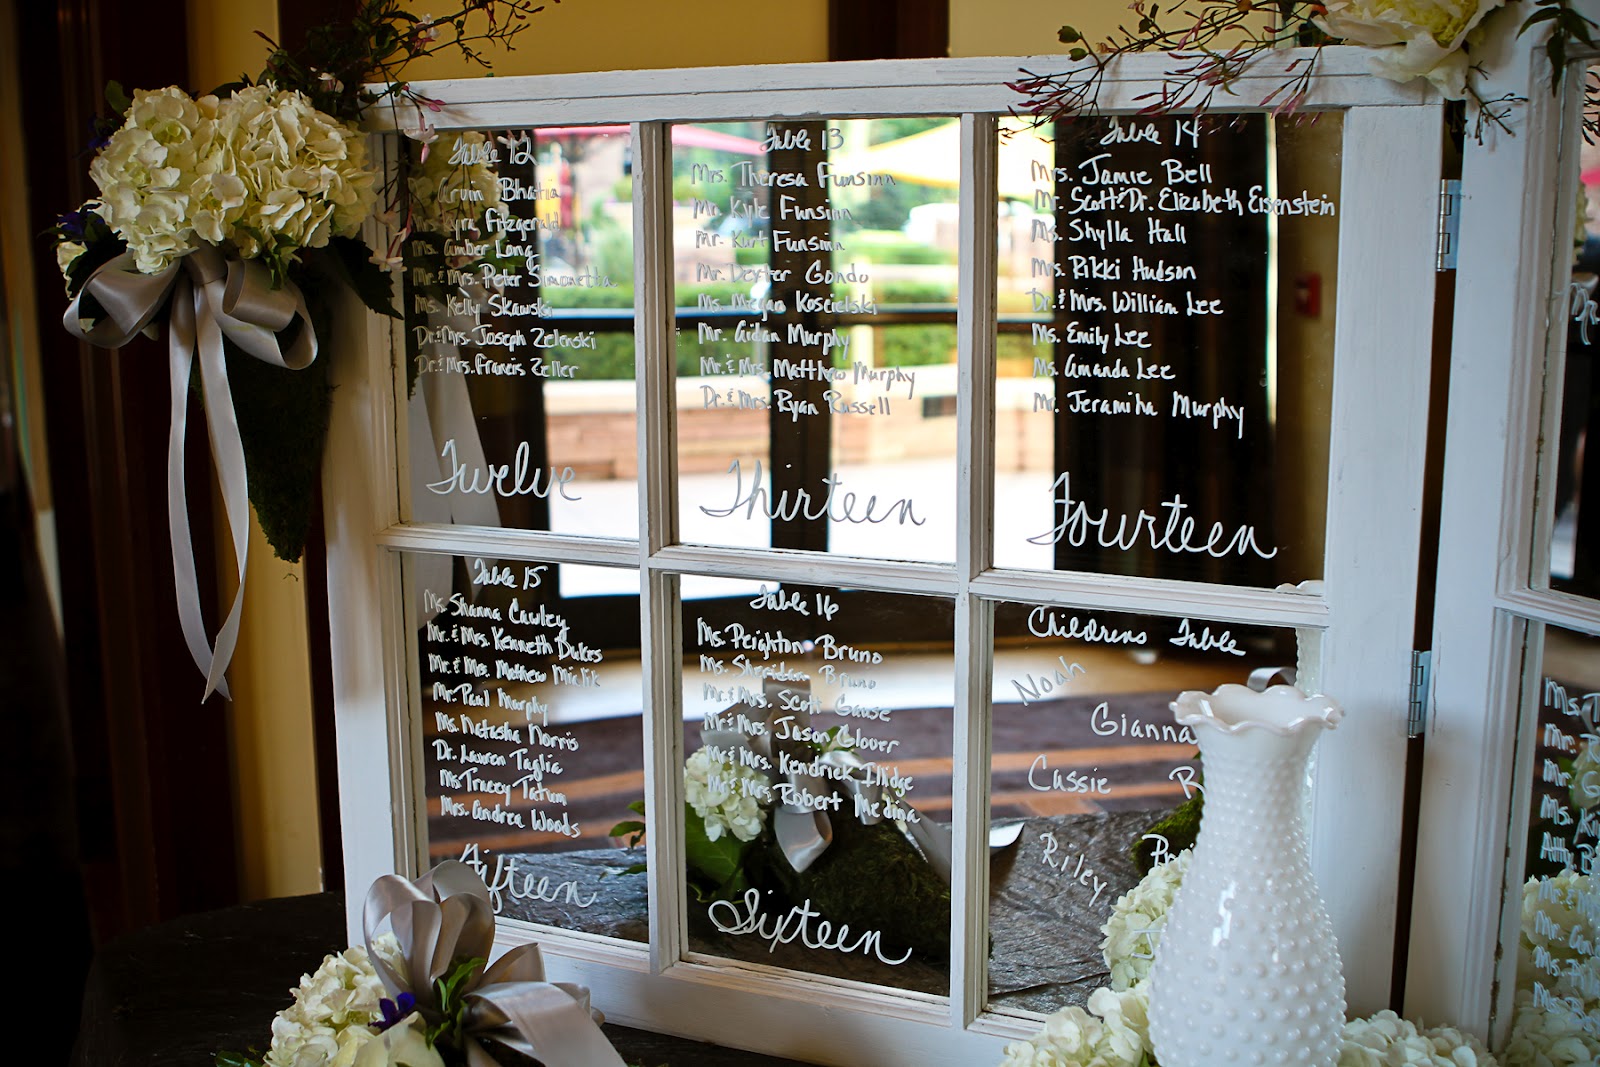 Table 12
Arvin Bhatia
Kyra Fitzgerald
Ms. Amber Long
Mr. & Mrs. Peter Simonetta
Ms. Kelly Skawski
Dr. & Mrs. Joseph Zelenski
Dr. & Mrs. Francis Zeller
Twelve
Table 13
Mrs. Theresa Funsinn
Mr. Kyle Funsinn
Mr. Kurt Funsinn
Mr. Dexter Gondo
Ms. Megan Koscielski
Mr. Aidan Murphy
Mr. & Mrs. Matthew Murphy
Dr. & Mrs. Ryan Russell
Thirteen
Table 14
Mrs. Jamie Bell
Mr. Scott & Dr. Elizabeth Eisenstein
Ms. Shylla Hall
Mrs. Rikki Hudson
Dr. & Mrs. William Lee
Ms. Emily Lee
Ms. Amanda Lee
Mr. Jeramiha Murphy
Fourteen
Table 15
Ms. Shanna Cawley
Mr. & Mrs. Kenneth Dukes
Mr. & Mrs. Mathew Miclik
Mr. Paul Murphy
Ms. Natasha Norris
Dr. Lauren Taglia
Ms Tracey Tatum
Mrs. Andrea Woods
Fifteen
Table 16
Ms. Peighton Bruno
Ms. Sheridan Bruno
Mr. & Mrs. Scott Gause
Mr & Mrs. Jason Glover
Mr & Mrs. Kendrick Illidge
Mr & Mrs Robert Medina
Sixteen
Childrens Table
Noah
Gianna
Cassie R
Riley